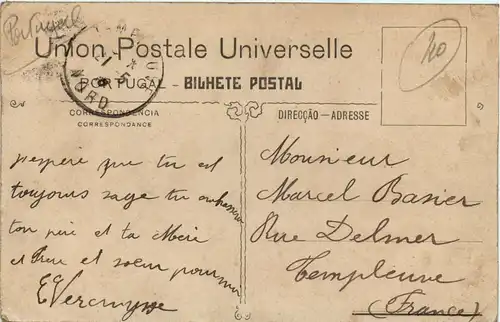 Portugal
20
Union Postale Universelle
21 5
NORD
PORTUGAL - BILHETE POSTAL
CORRESPONDENCIA
CORRESPONDANCE
DIRECÇÃO — ADRESSE
j'espere que tu est
toujours sage tu embrassera
ton père et ta Mère
et frère et soeur pour moi
E Vercruysse
Monsieur
Marcel Basier
Rue Delmer
Templeuve
(France)